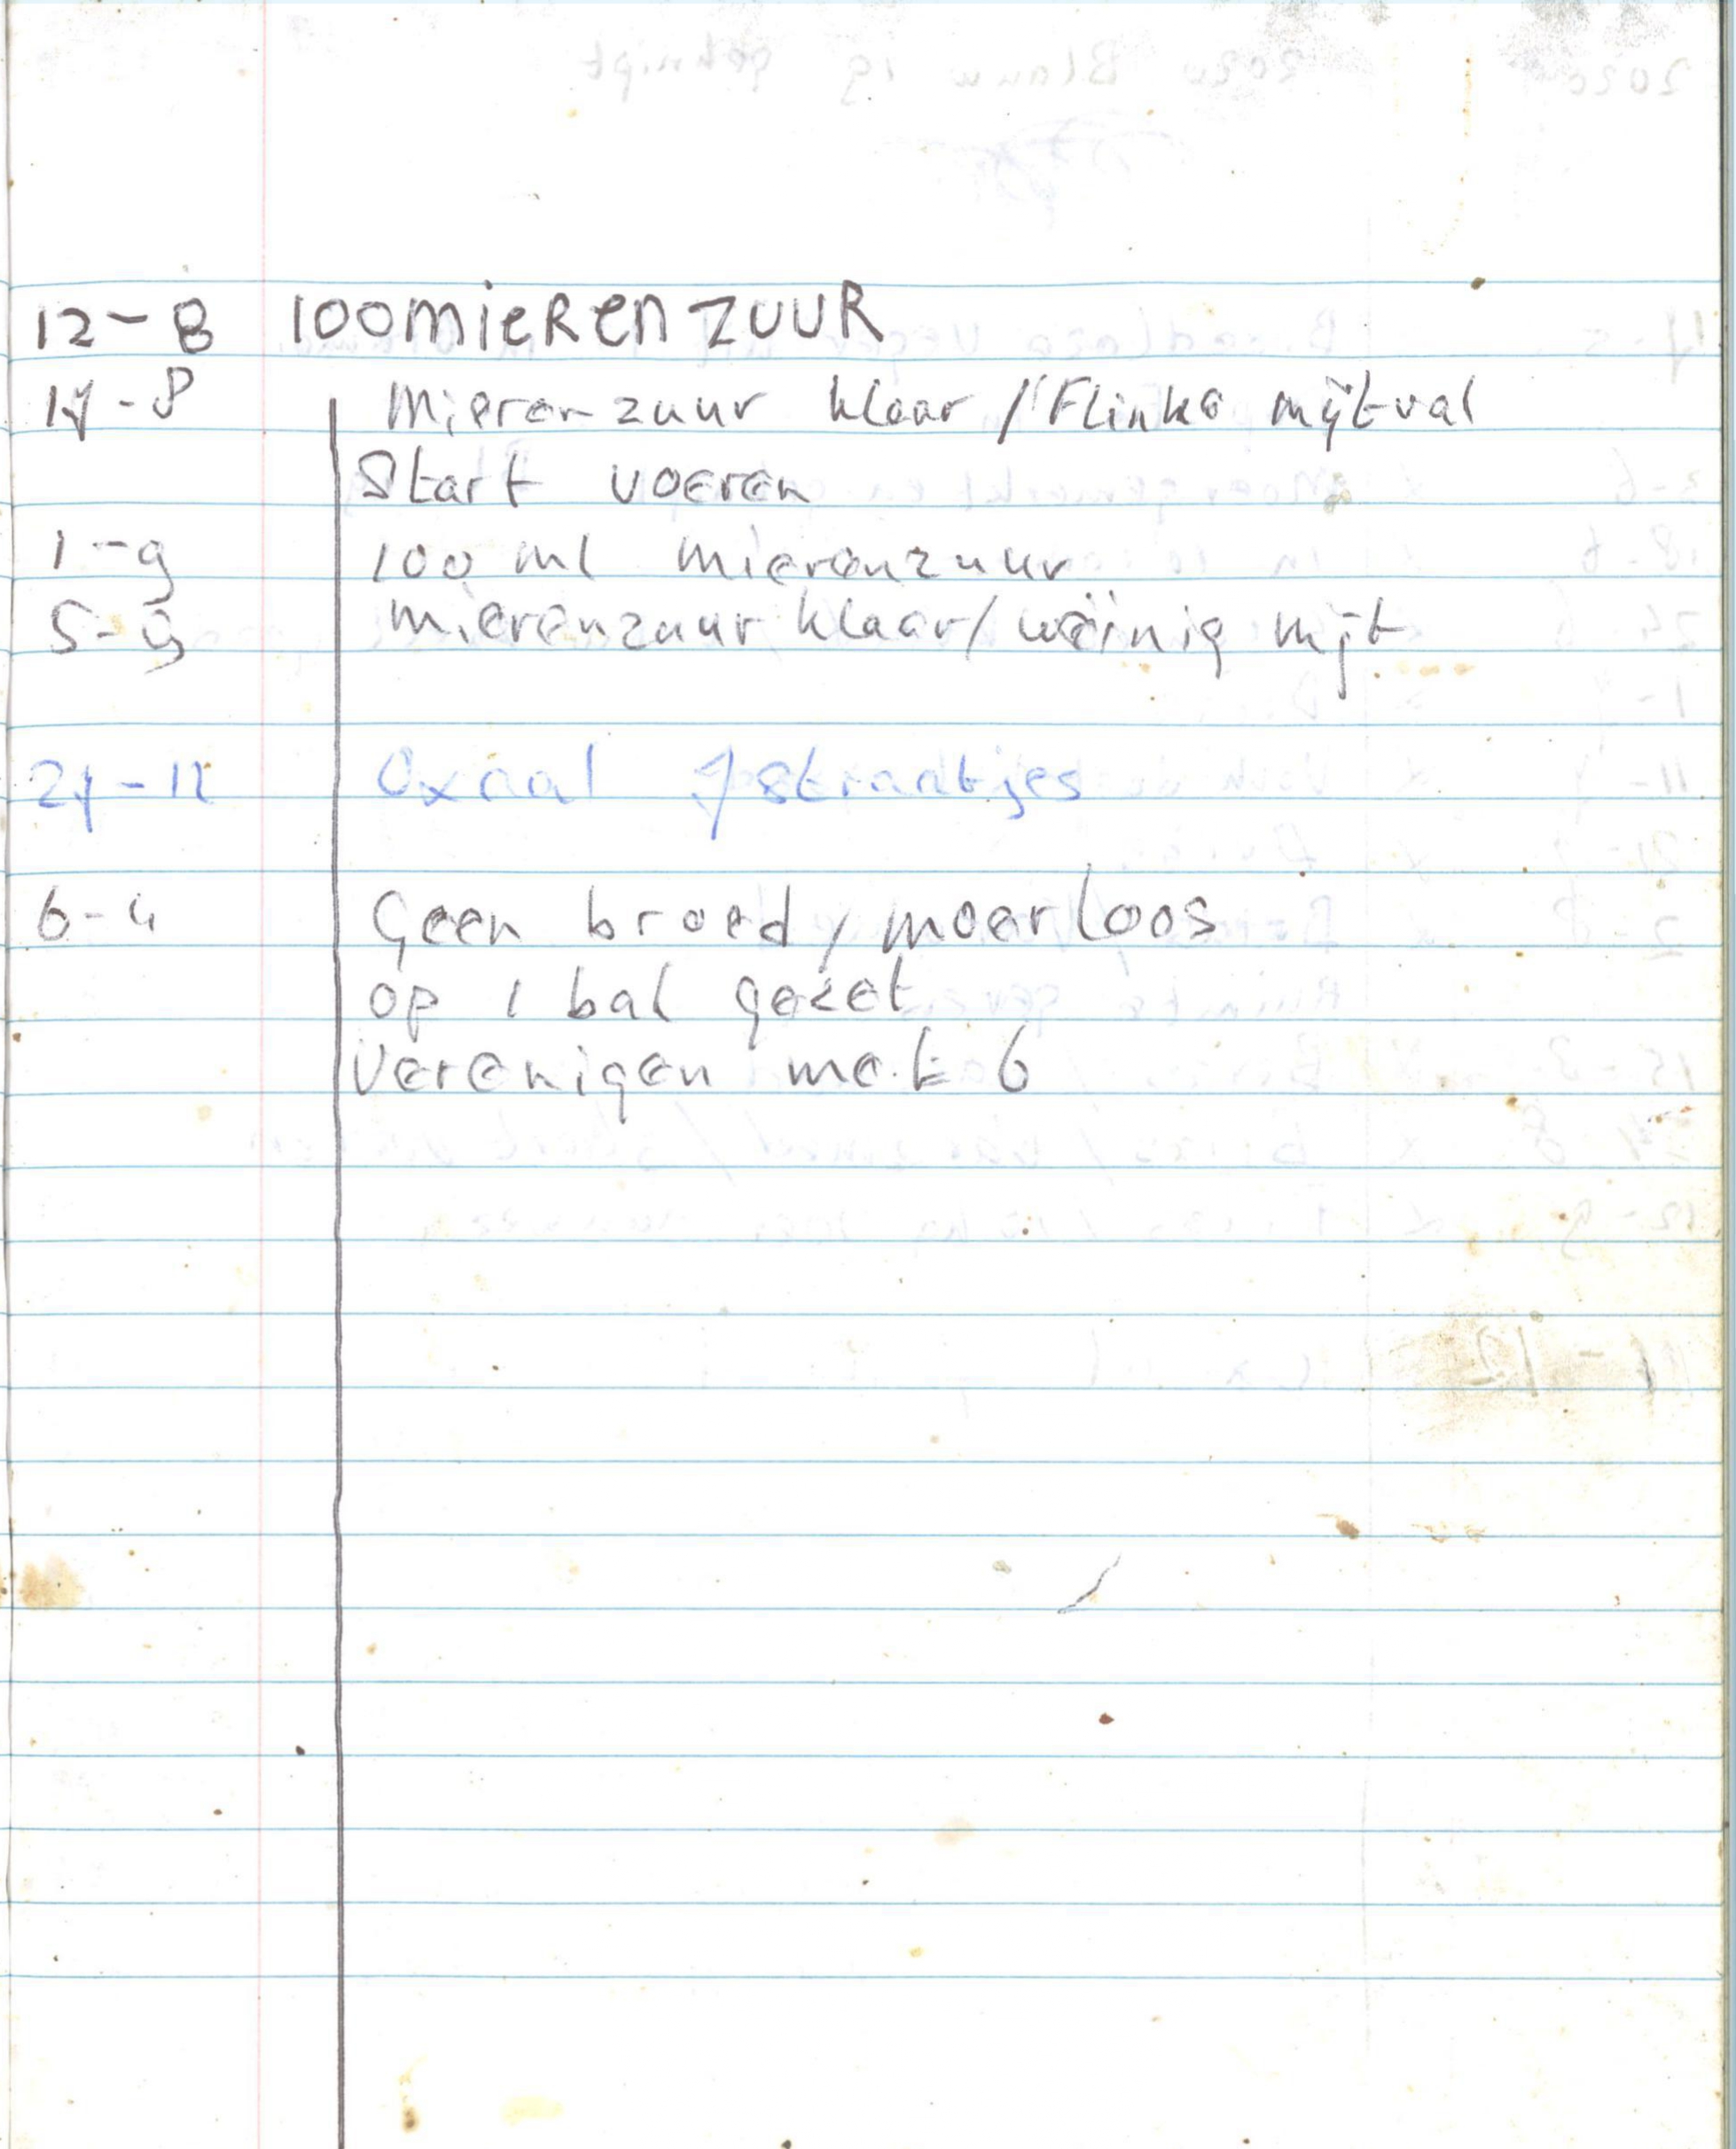 12-8 100mierenzuur
17-8 Mierenzuur klaar / Flinke mijtval
Start voeren
1-9 100 ml mierenzuur
5-9 mierenzuur klaar/ weinig mijt
27-12 Oxaal 7 straatjes
6-4 Geen broed, moerloos
op 1 bak gezet
Verenigen met 6